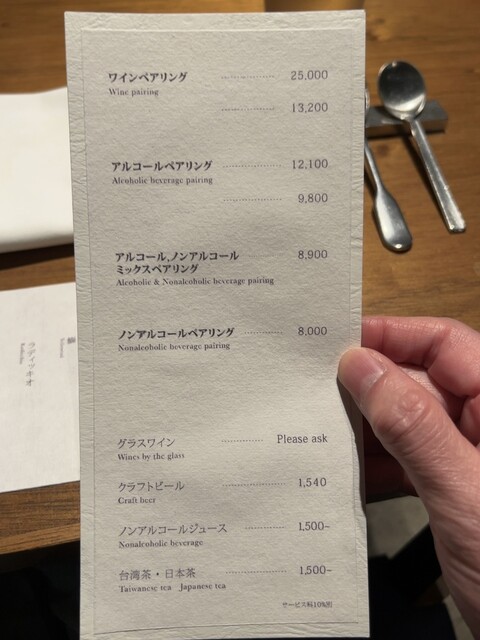 ワインペアリング ............... 25,000
Wine pairing
............... 13,200
アルコールペアリング ............... 12,100
Alcoholic beverage pairing
............... 9,800
アルコール、ノンアルコール 8,900
ミックスペアリング
Alcoholic & Nonalcoholic beverage pairing
ノンアルコールペアリング ............... 8,000
Nonalcoholic beverage pairing
グラスワイン ............... Please ask
Wines by the glass
クラフトビール ............... 1,540
Craft beer
ノンアルコールジュース ............... 1,500~
Nonalcoholic beverage
台湾茶・日本茶 ............... 1,500~
Taiwanese tea Japanese tea
サービス料10%別
ラディッキオ
Radicchio